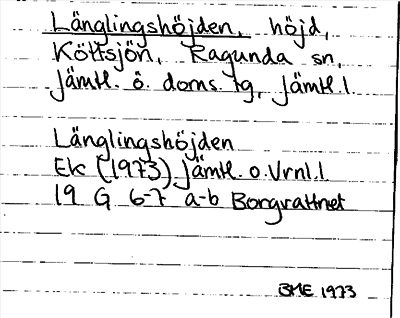 Länglingshöjden, höjd,
Köttsjön, Ragunda sn,
Jämtl. ö. doms. tg, Jämtl. l.
Länglingshöjden
Ek (1973) Jämtl. o. Vrnl. l
19 G 6-7 a-b Borgvattnet
BME 1973